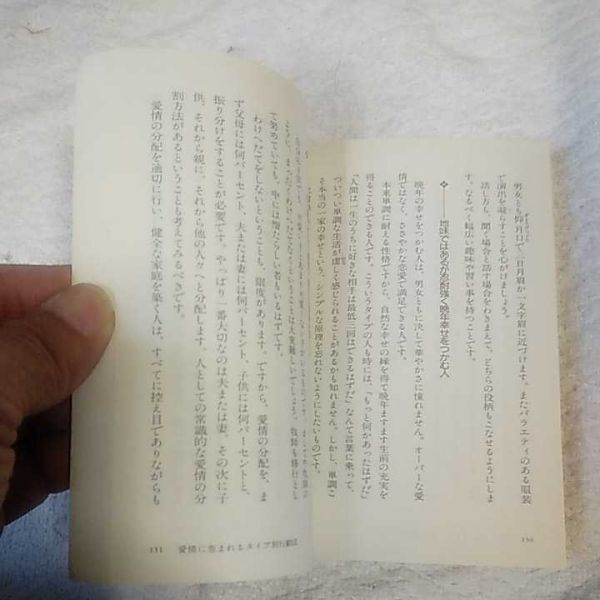 男女とも身だしなみで、三日月眉か一文字眉に近づけます。またバラエティのある服装
で演出を凝らすことを心がけましょう。
話し方も、聞く場合と話す場合をわきまえて、どちらの役柄もこなせるようにしま
す。なるべく幅広い趣味や習い事を持つことです。
❖――地味ではあるが忍耐強く晩年幸せをつかむ人
晩年の幸せをつかむ人は、男女ともに決して華やかさに憧れません。オーバーな愛
情ではなく、ささやかな恋愛で満足できる人です。
本来単調に耐える性格ですから、自然な幸せの縁を得て晩年ますます生前の充実を
得ることのできる人です。こういうタイプの人も時には、「もっと何かあったはずだ」
「人間は一生のうちに好きな相手は最低三回はできるはずだ」なんて言葉に乗って、
ついつい単調な生活が虚しく感じられることがあるかも知れません。しかし、単調こ
そ本当の一家の幸せという、シンプルな原理を忘れないようにしたいものです。
150
て努めていても、中には憎たらしい者もいるはずです。
わけへだてをしないということも、限度があります。ですから、愛情の分配を、ま
ず父母には何パーセント、夫または妻には何パーセント、子供には何パーセントと、
振り分けをすることが必要です。やっぱり一番大切なのは夫または妻。その次に子
供、それから親に、それから他の人々へと分配します。人としての常識的な愛情の分
割方法があるということも考えてみるべきです。
愛情の分配を適切に行い、健全な家庭を築く人は、すべてに控え目でありながらも
151 愛情に恵まれるタイプ別行動法